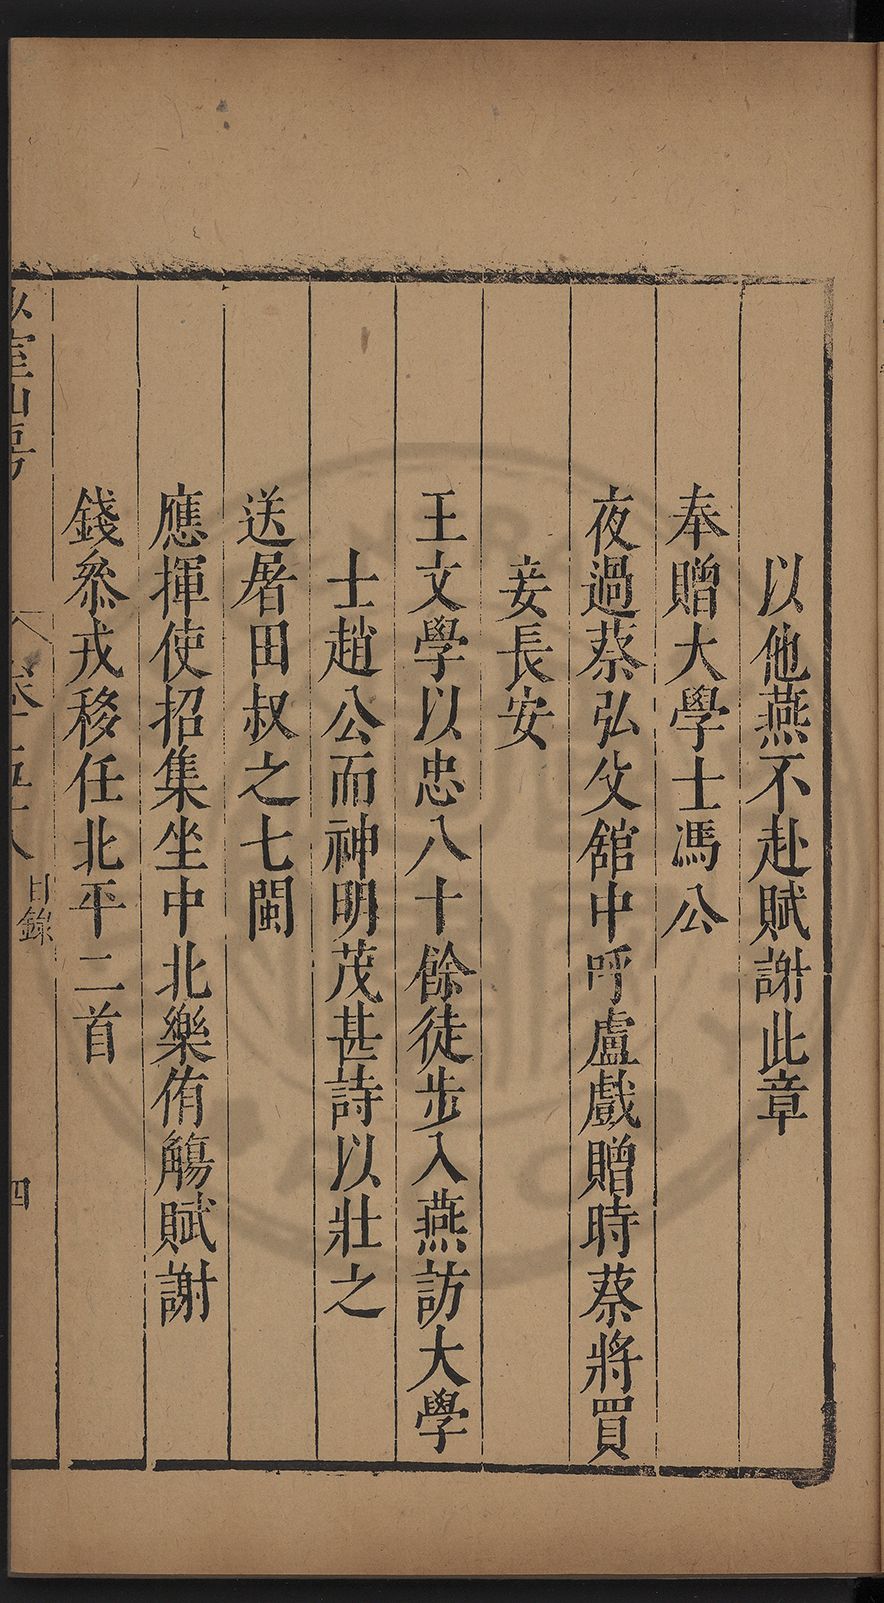 以他燕不赴賦謝此章
奉贈大學士馮公
夜過蔡弘父館中呼盧戲贈時蔡將買
妾長安
王文學以忠八十餘徒步入燕訪大學
士趙公而神明茂甚詩以壯之
送屠田叔之七閩
應揮使招集坐中北樂侑觴賦謝
錢叅戎移任北平二首
室山房
目錄
四